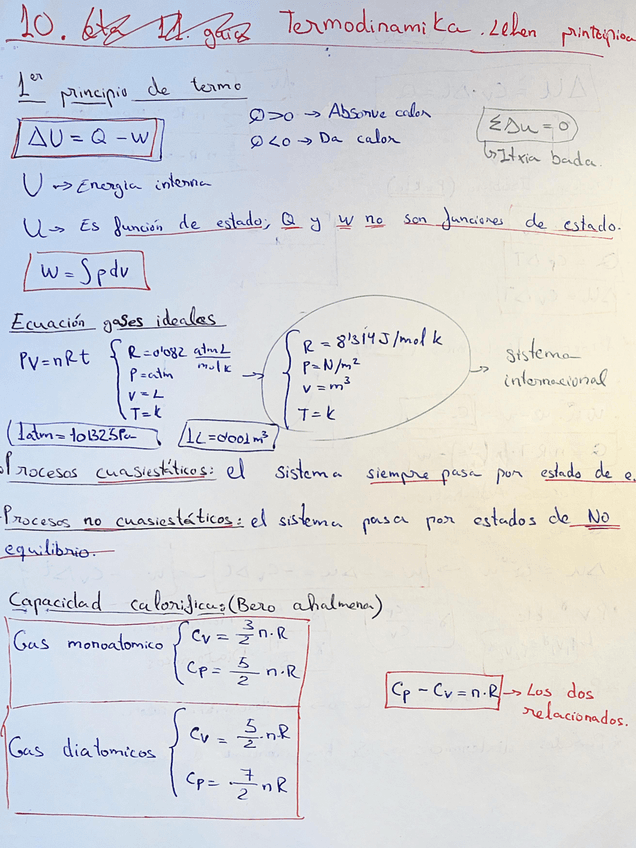 10. eta 11. gaia Termodinamika. Lehen printzipioa
1er principio de termo
ΔU = Q - W
Q>0 → Absorve calor
Q<0 → Da calor
ΣΔu = 0
↳ Itxia bada.
U → Energia interna
U → Es función de estado; Q y W no son funciones de estado.
W = ∫pdv
Ecuación gases ideales
PV = nRt
R = 0'082 atm L / mol k
P = atm
V = L
T = k
→
R = 8'314 J/mol k
P = N/m²
V = m³
T = k
→ sistema
internacional
1 atm = 101325 Pa
1L = 0'001 m³
Procesos cuasiestáticos: el sistema siempre pasa por estado de e.
Procesos no cuasiestáticos: el sistema pasa por estados de No
equilibrio.
Capacidad calorifica: (Bero ahalmena)
Gas monoatomico
Cv = 3/2 n·R
Cp = 5/2 n·R
Cp - Cv = n·R → Los dos
relacionados.
Gas diatomicos
Cv = 5/2 · nR
Cp = 7/2 nR